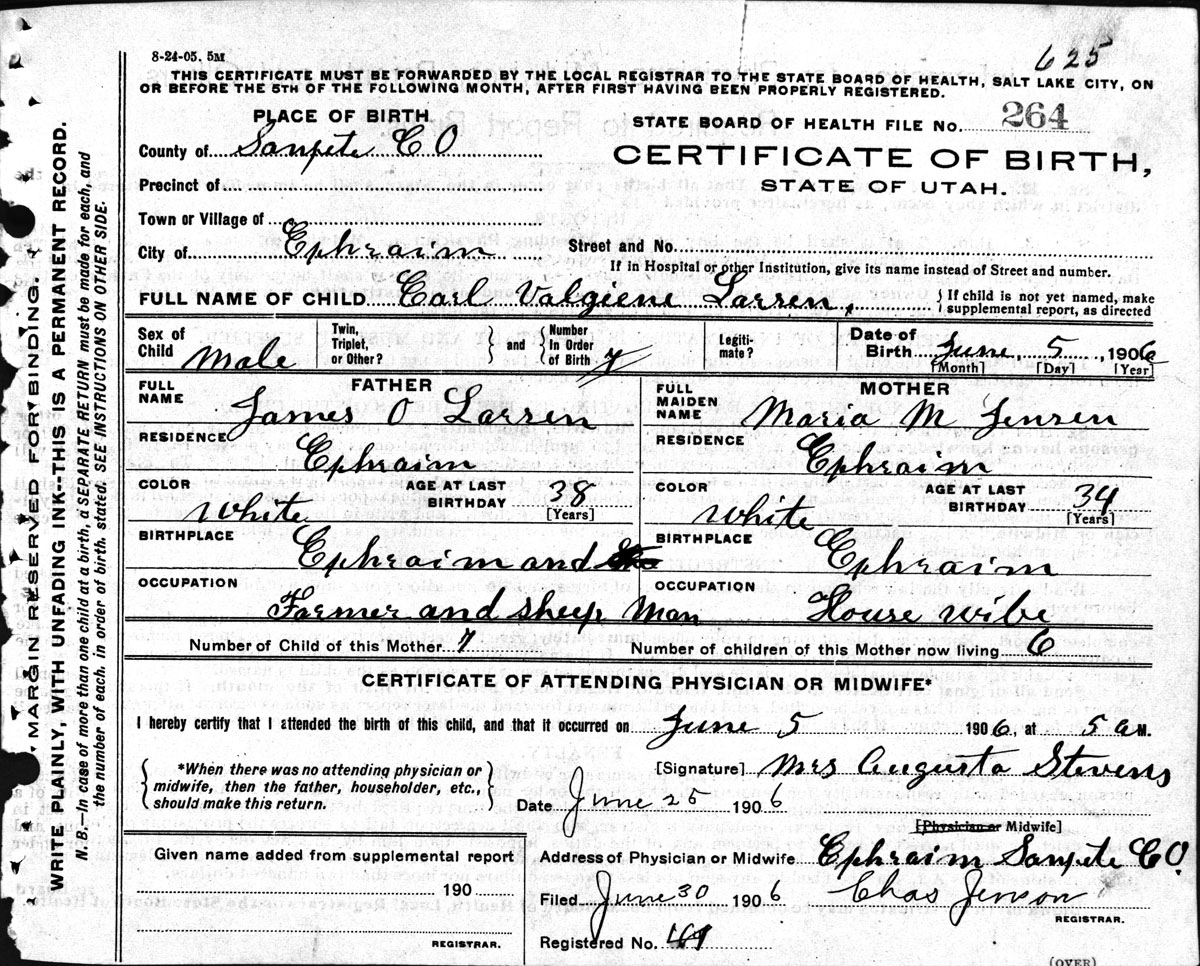 8-24-05. 5M
625
THIS CERTIFICATE MUST BE FORWARDED BY THE LOCAL REGISTRAR TO THE STATE BOARD OF HEALTH, SALT LAKE CITY, ON
OR BEFORE THE 5TH OF THE FOLLOWING MONTH, AFTER FIRST HAVING BEEN PROPERLY REGISTERED.
PLACE OF BIRTH
STATE BOARD OF HEALTH FILE No. 264
County of Sanpete CO
CERTIFICATE OF BIRTH,
STATE OF UTAH.
Precinct of
Town or Village of
City of Ephraim Street and No.
If in Hospital or other Institution, give its name instead of Street and number.
FULL NAME OF CHILD Carl Valgiene Larsen, {If child is not yet named, make supplemental report, as directed
Sex of Child Male Twin, Triplet, or Other? } and { Number In Order of Birth 7 Legiti-mate? Date of Birth June, 5, 1906
[Month] [Day] [Year]
FATHER
FULL NAME James O Larsen
RESIDENCE
Ephraim
COLOR White AGE AT LAST BIRTHDAY 38 [Years]
BIRTHPLACE
Ephraim and
OCCUPATION
Farmer and sheep Man
MOTHER
FULL MAIDEN NAME Maria M Jensen
RESIDENCE
Ephraim
COLOR White AGE AT LAST BIRTHDAY 34 [Years]
BIRTHPLACE
Ephraim
OCCUPATION
House wibe
Number of Child of this Mother 7 Number of children of this Mother now living 6
CERTIFICATE OF ATTENDING PHYSICIAN OR MIDWIFE*
I hereby certify that I attended the birth of this child, and that it occurred on June 5 1906, at 5 a M.
{*When there was no attending physician or
midwife, then the father, householder, etc.,
should make this return.}
[Signature] Mrs Augusta Stevens
Date June 25 1906
[Physician or Midwife]
Given name added from supplemental report
190
REGISTRAR.
Address of Physician or Midwife Ephraim Sanpete CO.
Filed June 30 1906 Chas Jenson
REGISTRAR.
Registered No.
(OVER)
MARGIN RESERVED FOR BINDING.
WRITE PLAINLY, WITH UNFADING INK-THIS IS A PERMANENT RECORD.
N. B.—In case of more than one child at a birth, a SEPARATE RETURN must be made for each, and
the number of each, in order of birth, stated. SEE INSTRUCTIONS ON OTHER SIDE.